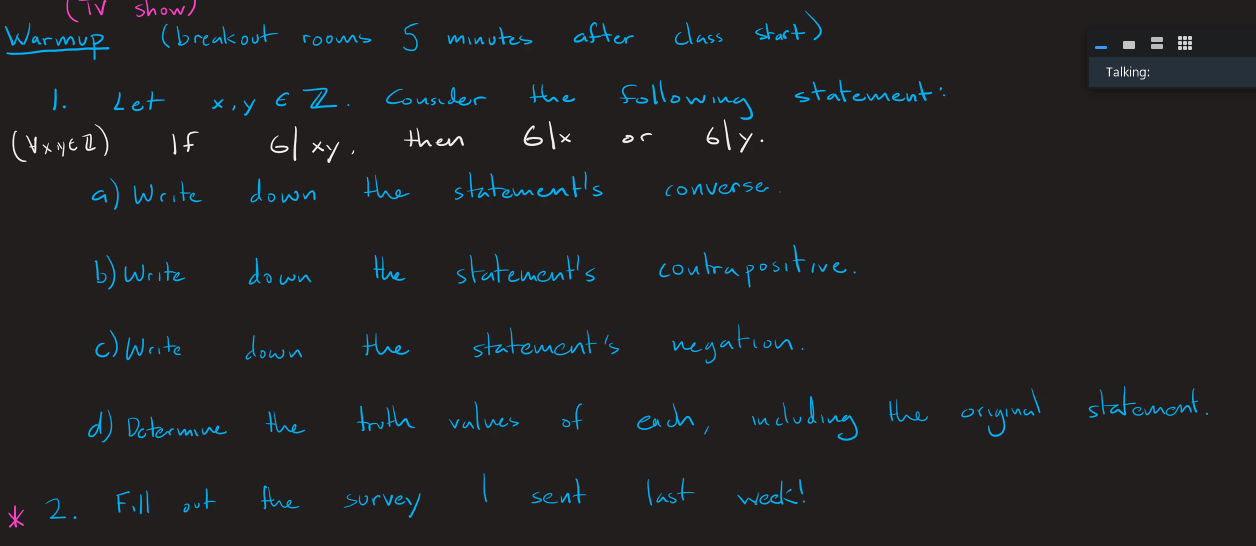 (TV show)
Warmup (breakout rooms 5 minutes after class start)
Talking:
1. Let x,y ∈ ℤ. Consider the following statement:
(∀x,y∈ℤ) If 6|xy, then 6|x or 6|y.
a) Write down the statement's converse.
b) Write down the statement's contrapositive.
c) Write down the statement's negation.
d) Determine the truth values of each, including the original statement.
* 2. Fill out the survey I sent last week!